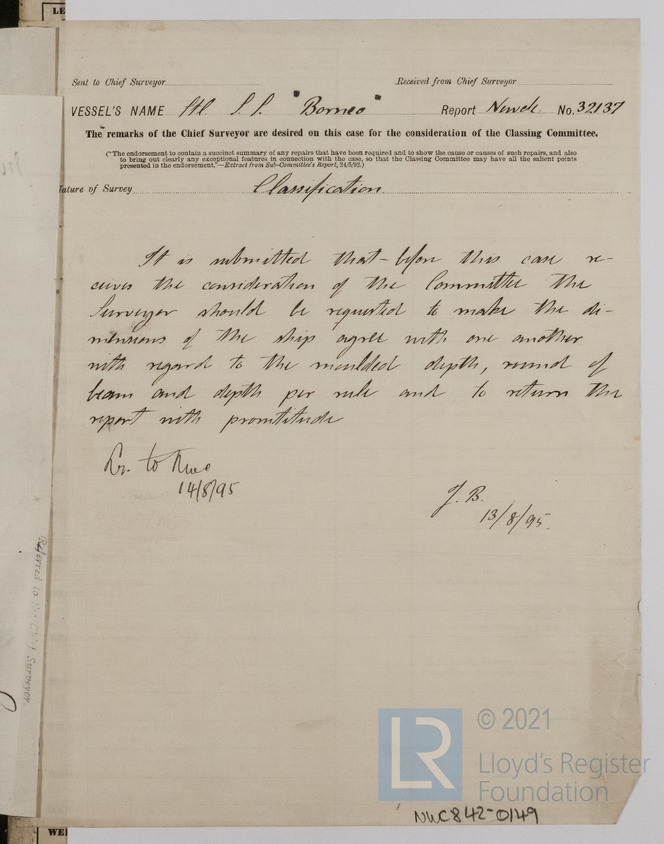 LE
Sent to Chief Surveyor
Received from Chief Surveyor
VESSEL'S NAME Stl S.S. "Borneo" Report Newcle. No. 32137
The remarks of the Chief Surveyor are desired on this case for the consideration of the Classing Committee.
("The endorsement to contain a succinct summary of any repairs that have been required and to show the cause or causes of such repairs, and also
to bring out clearly any exceptional features in connection with the case, so that the Classing Committee may have all the salient points
presented in the endorsement."—Extract from Sub-Committee's Report, 24/5/92.)
Nature of Survey Classification.
It is submitted that before this case re-
ceives the consideration of the Committee the
Surveyor should be requested to make the di-
mensions of the ship agree with one another
with regard to the moulded depth, round of
beam and depth per rule and to return the
report with promtitude
Lr. to Nwc
14/8/95
J.B.
13/8/95.
Referred to the Chief Surveyor
LR
© 2021
Lloyd's Register
Foundation
NWC842-0149
WEI